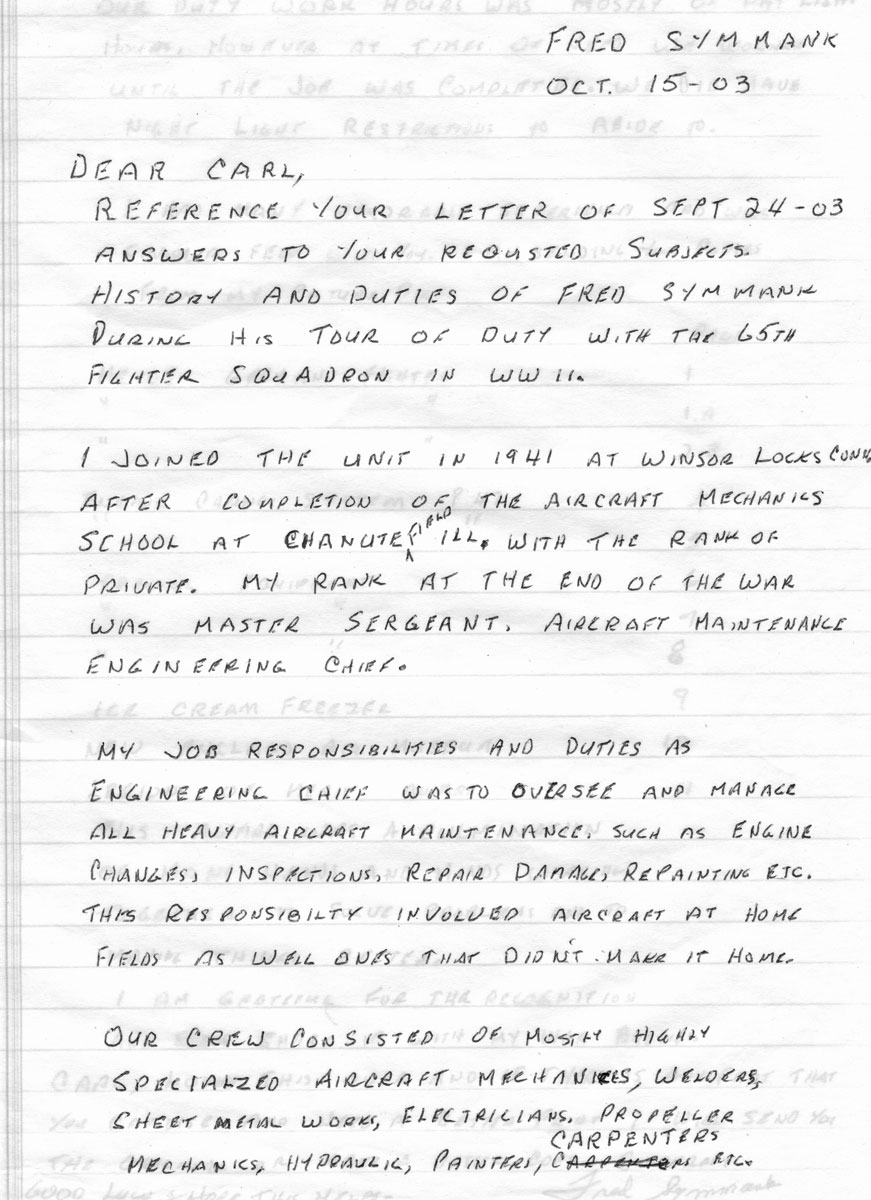 FRED SYMMANK
OCT. 15-03
DEAR CARL,
REFERENCE YOUR LETTER OF SEPT 24-03
ANSWERS TO YOUR REQUSTED SUBJECTS.
HISTORY AND DUTIES OF FRED SYMMANK
DURING HIS TOUR OF DUTY WITH THE 65TH
FIGHTER SQUADRON IN WW II.
I JOINED THE UNIT IN 1941 AT WINSOR LOCKS CONN.
AFTER COMPLETION OF THE AIRCRAFT MECHANICS
SCHOOL AT CHANUTE FIELD ILL. WITH THE RANK OF
PRIVATE. MY RANK AT THE END OF THE WAR
WAS MASTER SERGEANT. AIRCRAFT MAINTENANCE
ENGINEERING CHIEF.
MY JOB RESPONSIBILITIES AND DUTIES AS
ENGINEERING CHIEF WAS TO OVERSEE AND MANAGE
ALL HEAVY AIRCRAFT MAINTENANCE. SUCH AS ENGINE
CHANGES, INSPECTIONS, REPAIR DAMAGE, REPAINTING ETC.
THIS RESPONSIBILTY INVOLVED AIRCRAFT AT HOME
FIELDS AS WELL ONES THAT DIDN'T MAKE IT HOME.
OUR CREW CONSISTED OF MOSTLY HIGHLY
SPECIALZED AIRCRAFT MECHANICS, WELDERS,
SHEET METAL WORKS, ELECTRICIANS. PROPELLER
MECHANICS, HYDRAULIC, PAINTERS, CARPENTERS ETC.